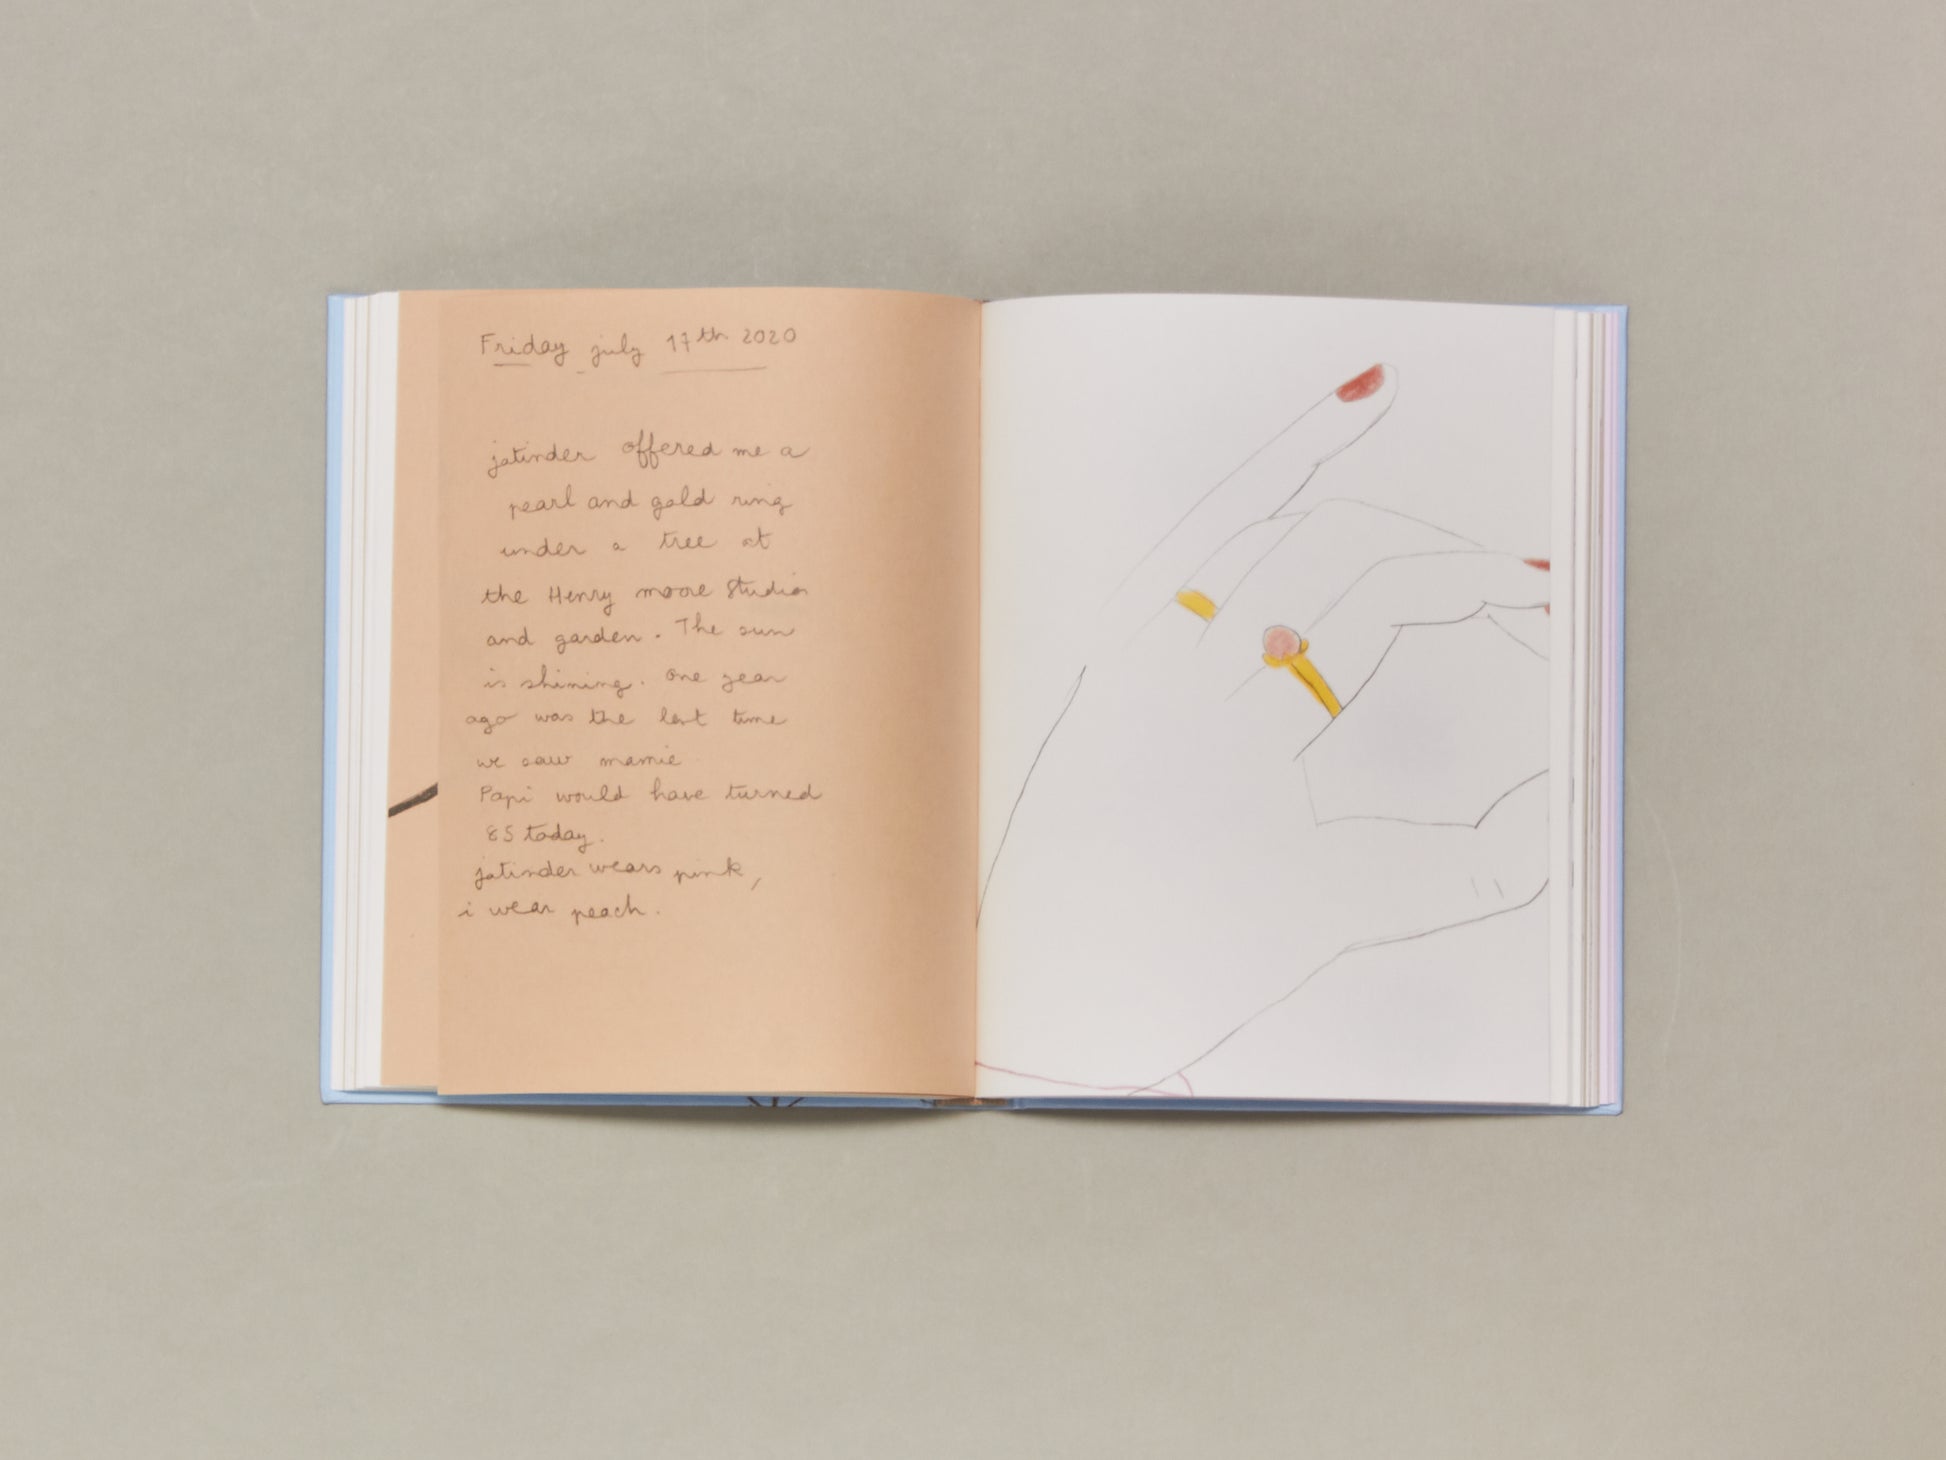 Friday july 17th 2020
jatinder offered me a
pearl and gold ring
under a tree at
the Henry moore Studio
and garden. The sun
is shining. One year
ago was the last time
we saw mamie
Papi would have turned
85 today.
jatinder wears pink,
i wear peach.